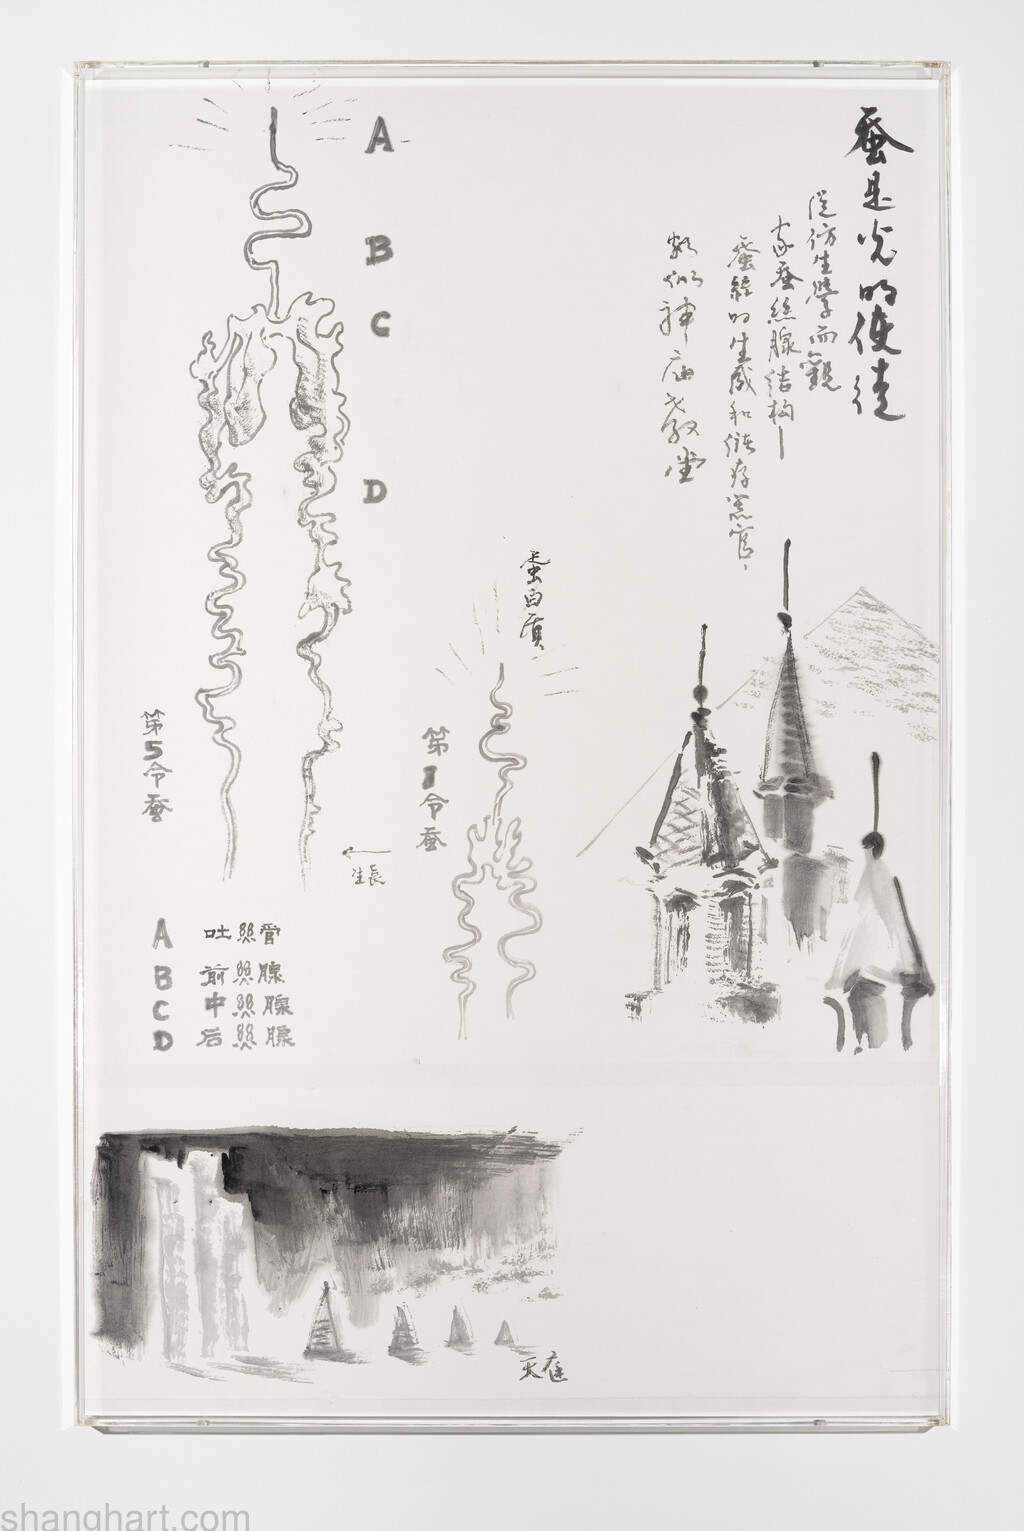 蚕是光的使徒
從仿生學而觀
家蚕丝腺结构—
蚕丝的生成和储存器官，
类似神庙教堂
A
B
C
D
蛋白质
第5令蚕
第1令蚕
生長
A 吐丝管
B 前丝腺
C 中丝腺
D 后丝腺
天庭
shanghart.com